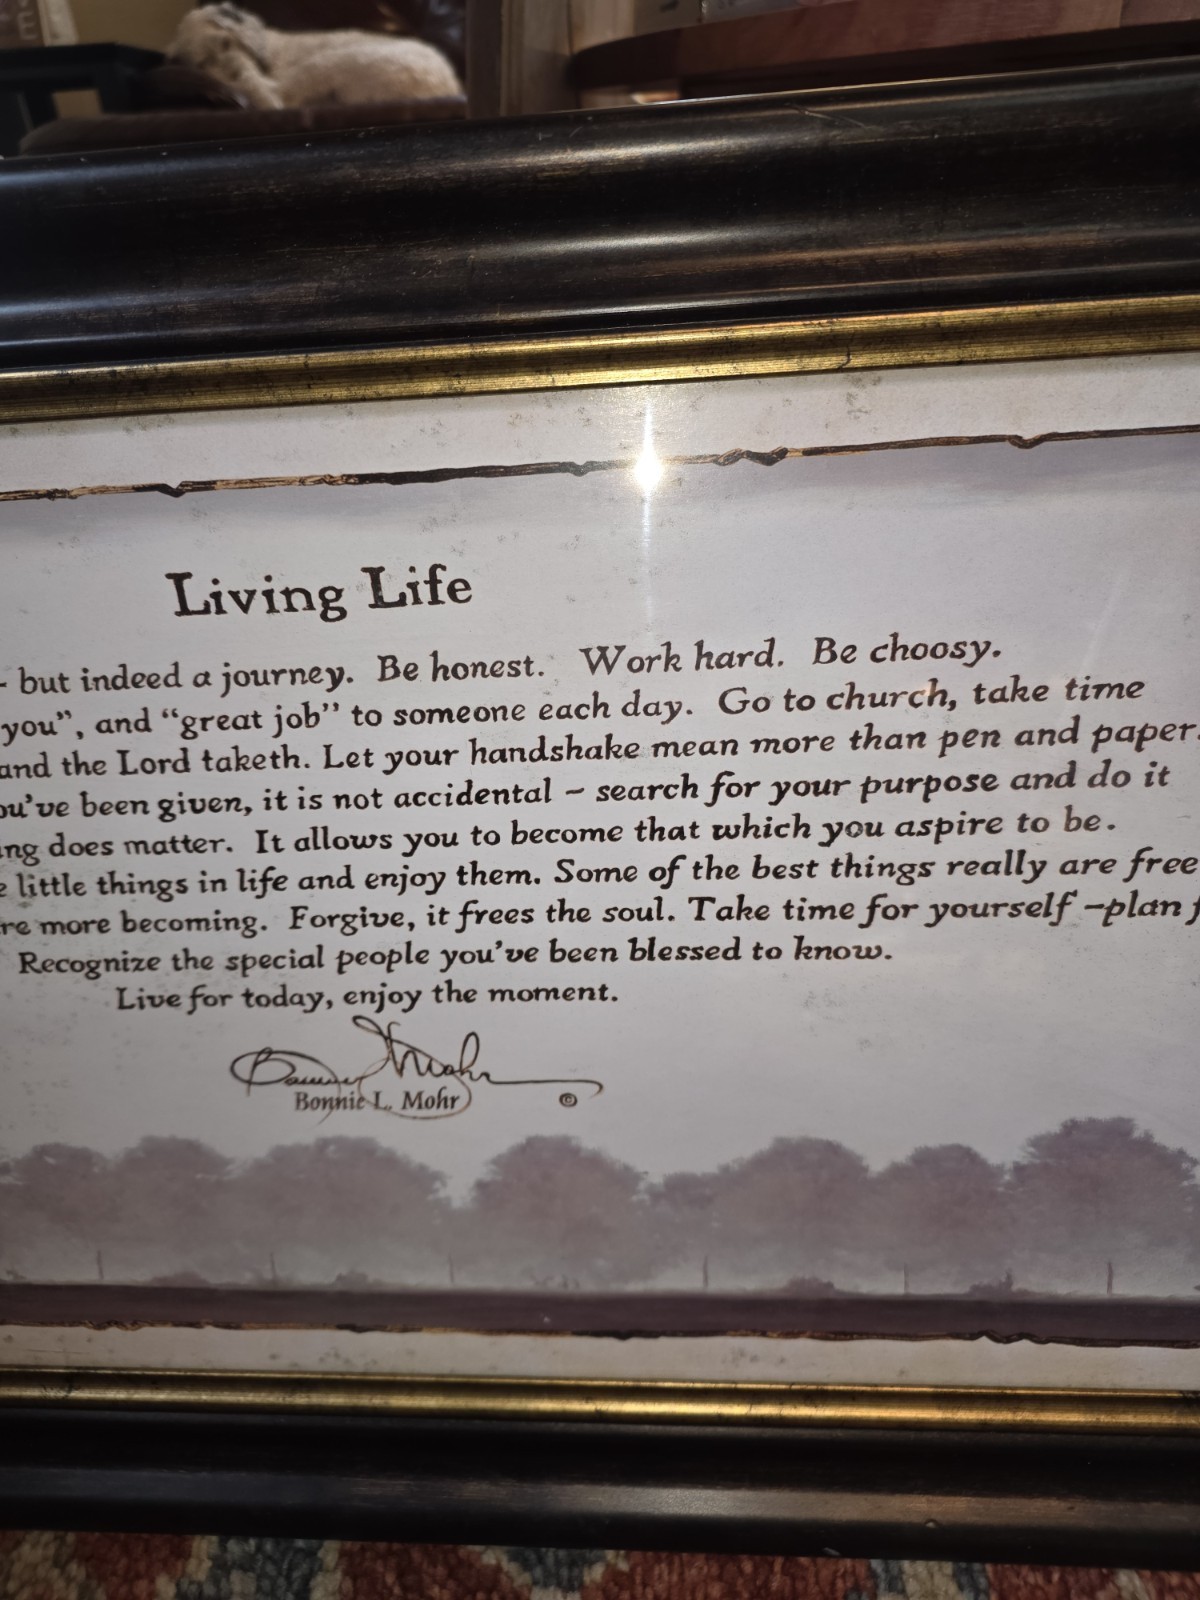 Living Life
- but indeed a journey. Be honest. Work hard. Be choosy.
you", and "great job" to someone each day. Go to church, take time
and the Lord taketh. Let your handshake mean more than pen and paper.
ou've been given, it is not accidental ~ search for your purpose and do it
ng does matter. It allows you to become that which you aspire to be.
e little things in life and enjoy them. Some of the best things really are free
re more becoming. Forgive, it frees the soul. Take time for yourself ~plan f
Recognize the special people you've been blessed to know.
Live for today, enjoy the moment.
Bonnie L. Mohr
Bonnie L. Mohr ©